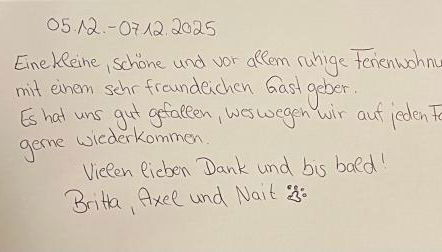 05.12.-07.12.2025
Eine kleine, schöne und vor allem ruhige Ferienwohnu
mit einem sehr freundlichen Gastgeber.
Es hat uns gut gefallen, weswegen wir auf jeden Fa
gerne wiederkommen.
Vielen lieben Dank und bis bald!
Britta, Axel und Nait